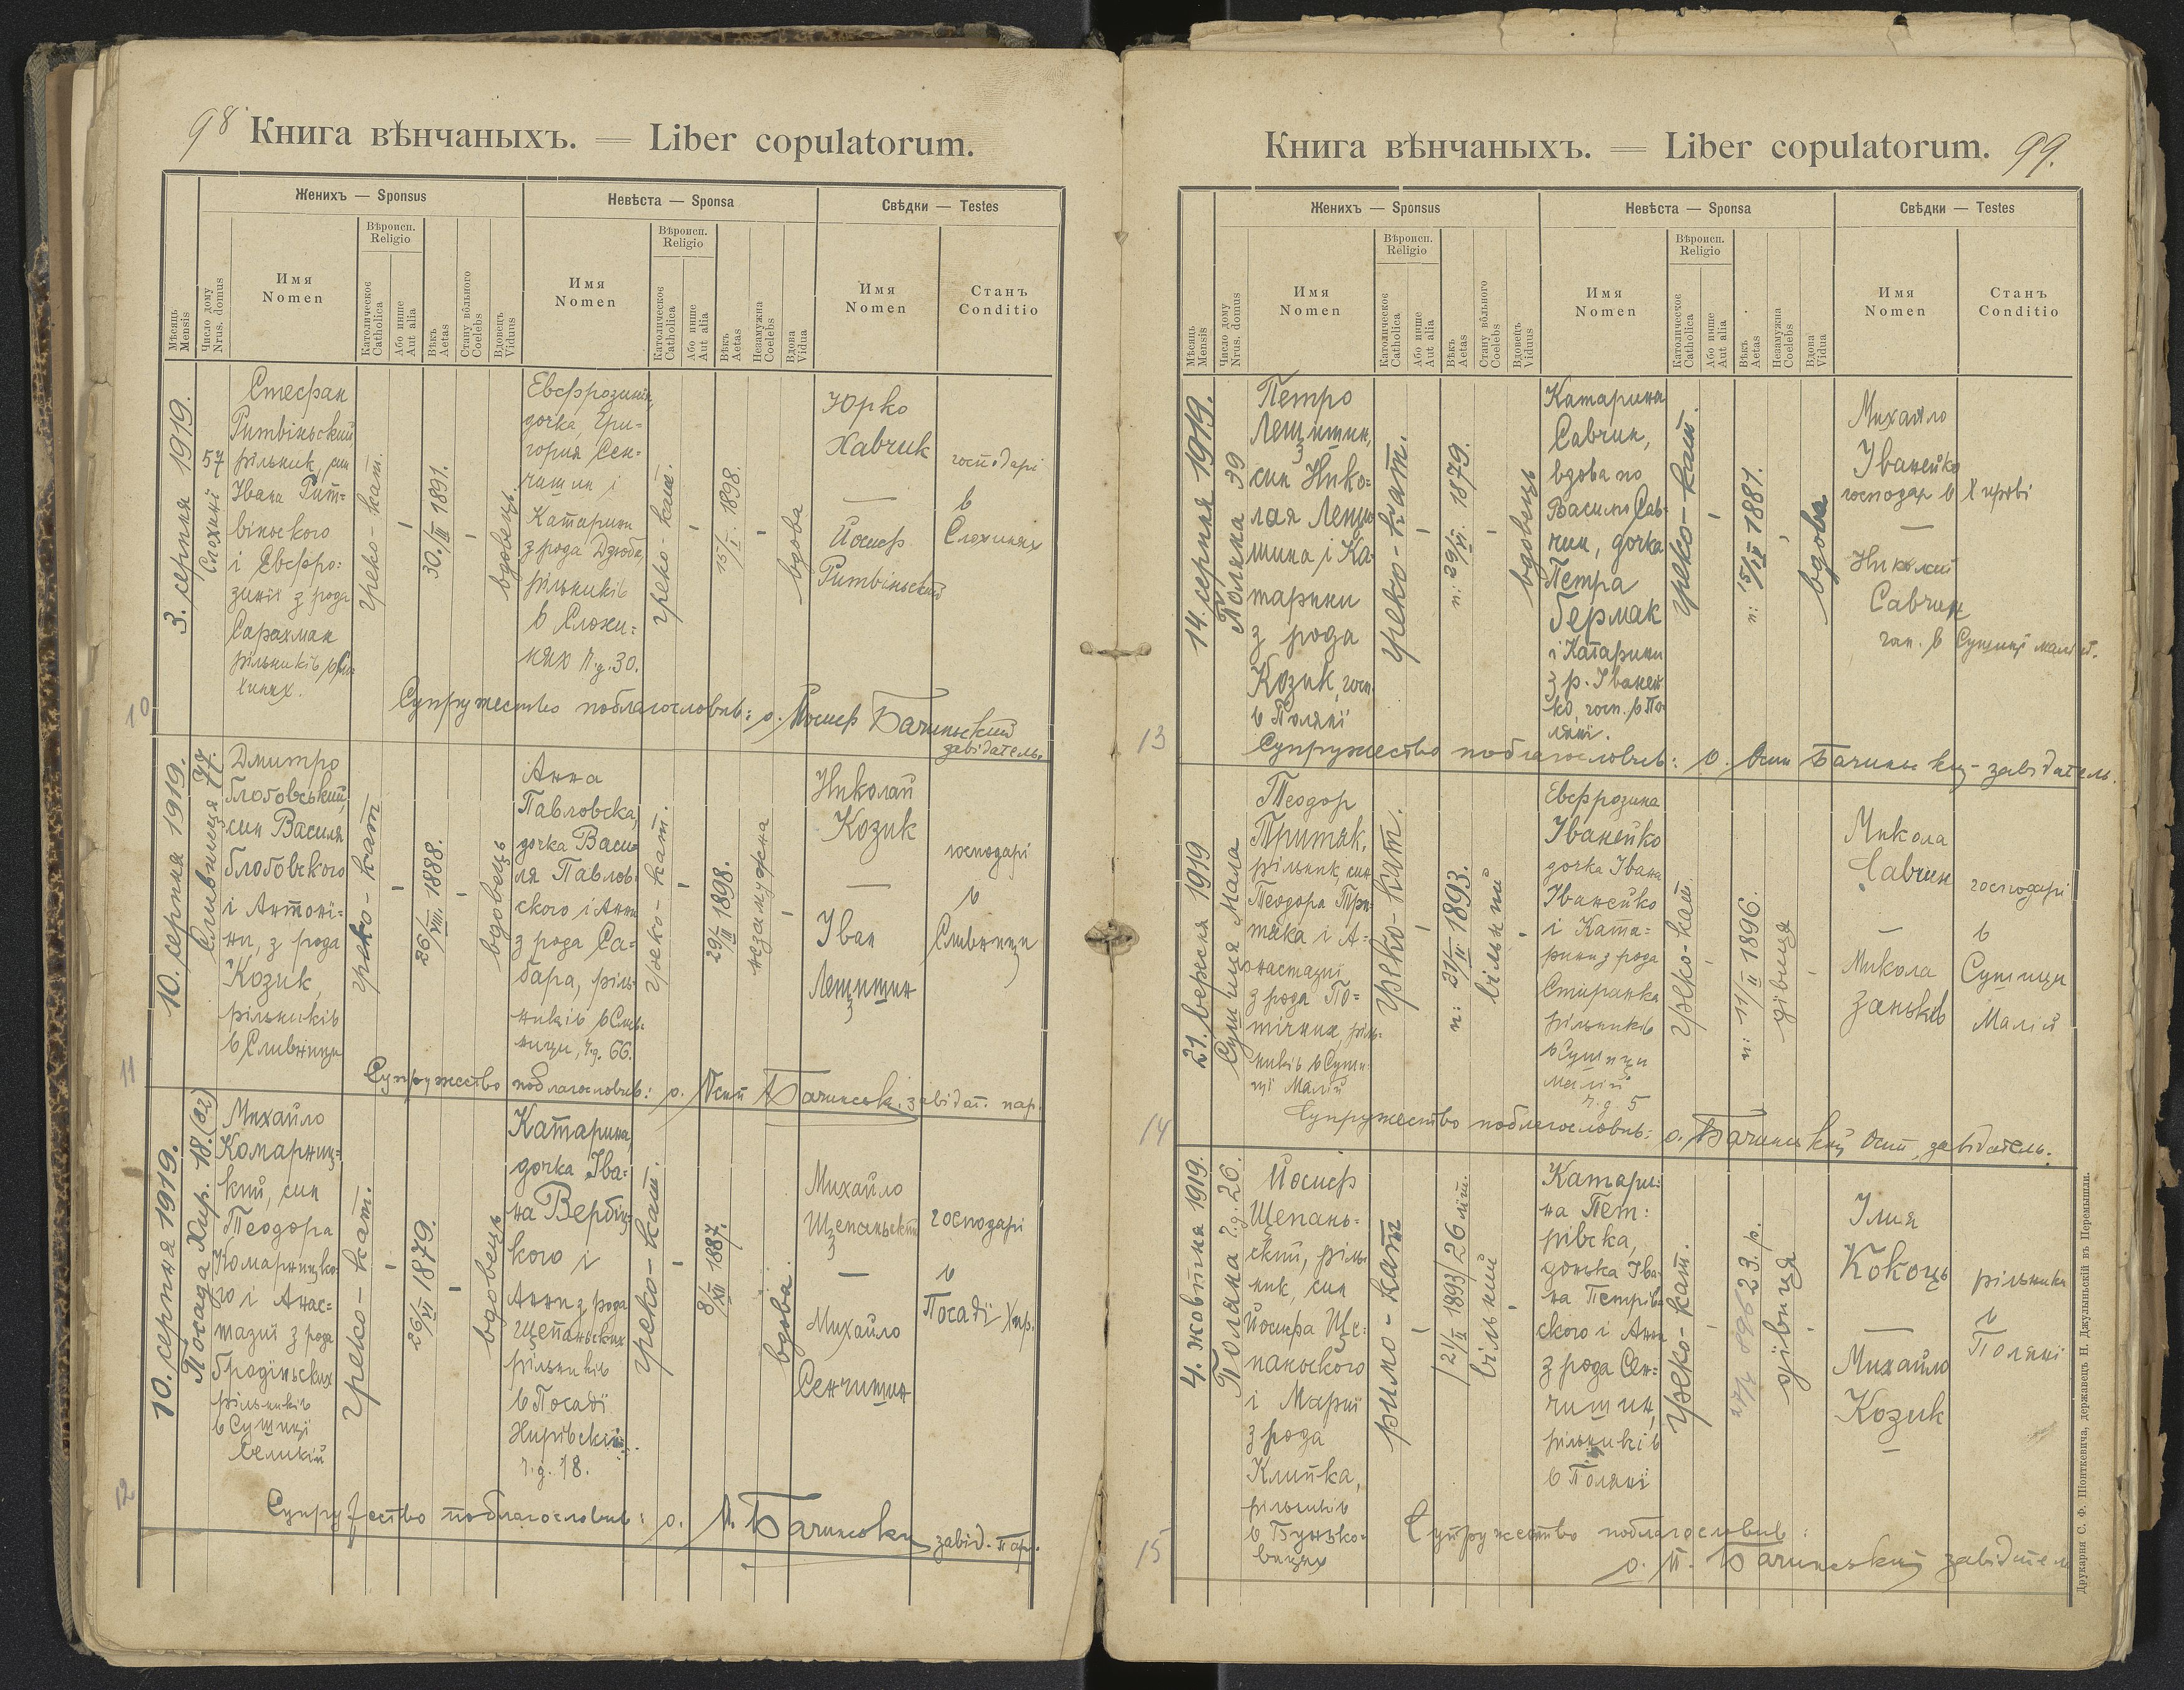 98
Книга вѣнчаныхъ. = Liber copulatorum.
Женихъ — Sponsus
Невѣста — Sponsa
Свѣдки — Testes
Мѣсяць
Mensis
Число дому
Nrus. domus
Имя
Nomen
Вѣроисп.
Religio
Католическое
Catholica
Або инше
Aut alia
Вѣкъ
Aetas
Стану вôльного
Coelebs
Вдовець
Viduus
Имя
Nomen
Вѣроисп.
Religio
Католическое
Catholica
Або инше
Aut alia
Вѣкъ
Aetas
Незамужна
Coelebs
Вдова
Vidua
Имя
Nomen
Станъ
Conditio
10
3. серпня 1919.
Слохинї 57
Стефан
Ритвіньский
рільник, син
Івана Рит=
віньского
і Евфро=
зинії з рода
Сарахман
рільників в Сло
хинях.
греко-кат.
30./III 1891.
вдовець.
Евфрозинія,
дочка Гри=
гория Сен=
чишин і
Катарини
з рода Дзюба,
рільників
в Слохи=
нях ч.д. 30.
греко-кат.
15/I. 1898.
вдова
Юрко
Хавчик
—
Йосиф
Ритвіньский
господарі
в
Слохинях
Супружество поблагословив: о. Йосиф Бачиньский
завідатель.
11
10. серпня 1919.
Сливниця 77.
Дмитро
Блоговський,
син Василя
Блоговского
і Антонї=
ни, з рода
Козик,
рільників
в Сливници
греко-кат
26/VIII. 1888.
вдовець
Анна
Павловска,
дочка Васи=
ля Павлов=
ского і Анни
з рода Са=
бара, ріль=
ників в Слив=
ници, ч.д. 66.
греко-кат.
29/III 1898.
незамужна
Николай
Козик
—
Іван
Лещишин
господарі
в
Сливници
Супружество поблагословив: о. Осип Бачинськ. завідат. пар.
12
10. серпня 1919.
Посада Хир. 18. (82)
Михайло
Комарниц=
кий, син
Теодора
Комарницко
го і Анас=
тазиї з рода
Бродїньских
рільників
в Сушици
Великій
греко-кат.
26/VI 1879.
вдовець
Катарина,
дочка Іва=
на Вербіц=
кого і
Анни з рода
Щепаньских
рільників
в Посадї
Хирівскій
ч.д. 18.
греко-кат.
8/XII 1887.
вдова.
Михайло
Щепаньский
—
Михайло
Сенчишин
господарі
в
Посадї Хир.
Супружество поблагословив: о. Й. Бачинський завід. пар.
99.
Книга вѣнчаныхъ. = Liber copulatorum.
Женихъ — Sponsus
Невѣста — Sponsa
Свѣдки — Testes
Мѣсяць
Mensis
Число дому
Nrus. domus
Имя
Nomen
Вѣроисп.
Religio
Католическое
Catholica
Або инше
Aut alia
Вѣкъ
Aetas
Стану вôльного
Coelebs
Вдовець
Viduus
Имя
Nomen
Вѣроисп.
Religio
Католическое
Catholica
Або инше
Aut alia
Вѣкъ
Aetas
Незамужна
Coelebs
Вдова
Vidua
Имя
Nomen
Станъ
Conditio
13
14. серпня 1919.
Поляна 39
Петро
Лещишин,
син Нико=
лая Лещи
шина і Ка=
тарини
з рода
Козик, госп.
в Поляні
греко-кат.
п: 29/VI. 1879.
вдовець
Катарина
Савчин,
вдова по
Василю Сав=
чин, дочка
Петра
Бермак
і Катарини
з р. Іваней
ко, госп. в По
ляні.
греко-кат.
п: 15/IV 1881.
вдова
Михайло
Іванейко
господар в Хирові
—
Николай
Савчин
гоп. в Сушици малій.
Супружество поблагословив: О. Осип Бачинський - завідатель.
14
21. вересня 1919
Сушиця Мала
Теодор
Притяк,
рільник, син
Теодора При
тяка і А=
настазиї
з рода По=
тічних, ріль=
ників в Суши
ці Малій
греко-кат.
п: 21/II 1893.
вільний
Евфрозина
Іванейко
дочка Івана
Іванейко
і Ката=
рини з рода
Стиранка
рільників
в Сушици
малій
ч.д 5
греко-кат
п: 11/II 1896.
дівиця
Микола
Савчин
—
Микола
Заньків
господарі
в
Сушици
Малій
Супружество поблагословив: о. Бачинський Осип, завідатель.
15
4. жовтня 1919.
Поляна ч.д. 26.
Йосиф
Щепань=
ский, ріль
ник, син
Йосифа Ще=
паньского
і Мариї
з рода
Клипка,
рільників
в Бунько=
вицях
римо-кат
21/II 1893/26 літ.
вільний
Катари=
на Пет=
рівска,
донька Іва
на Петрів
ского і Анни
з рода Сен=
чишин,
рільників
в Поляні
греко-кат.
23. р.
1896
дівиця
Ілия
Кокоць
—
Михайло
Козик
рільники
в
Поляні
Супружество поблагословив:
о. Й. Бачинский завідатель
Друкарня С. Ф. Піонткевича, державець Н. Джулыньскій въ Перемышли.